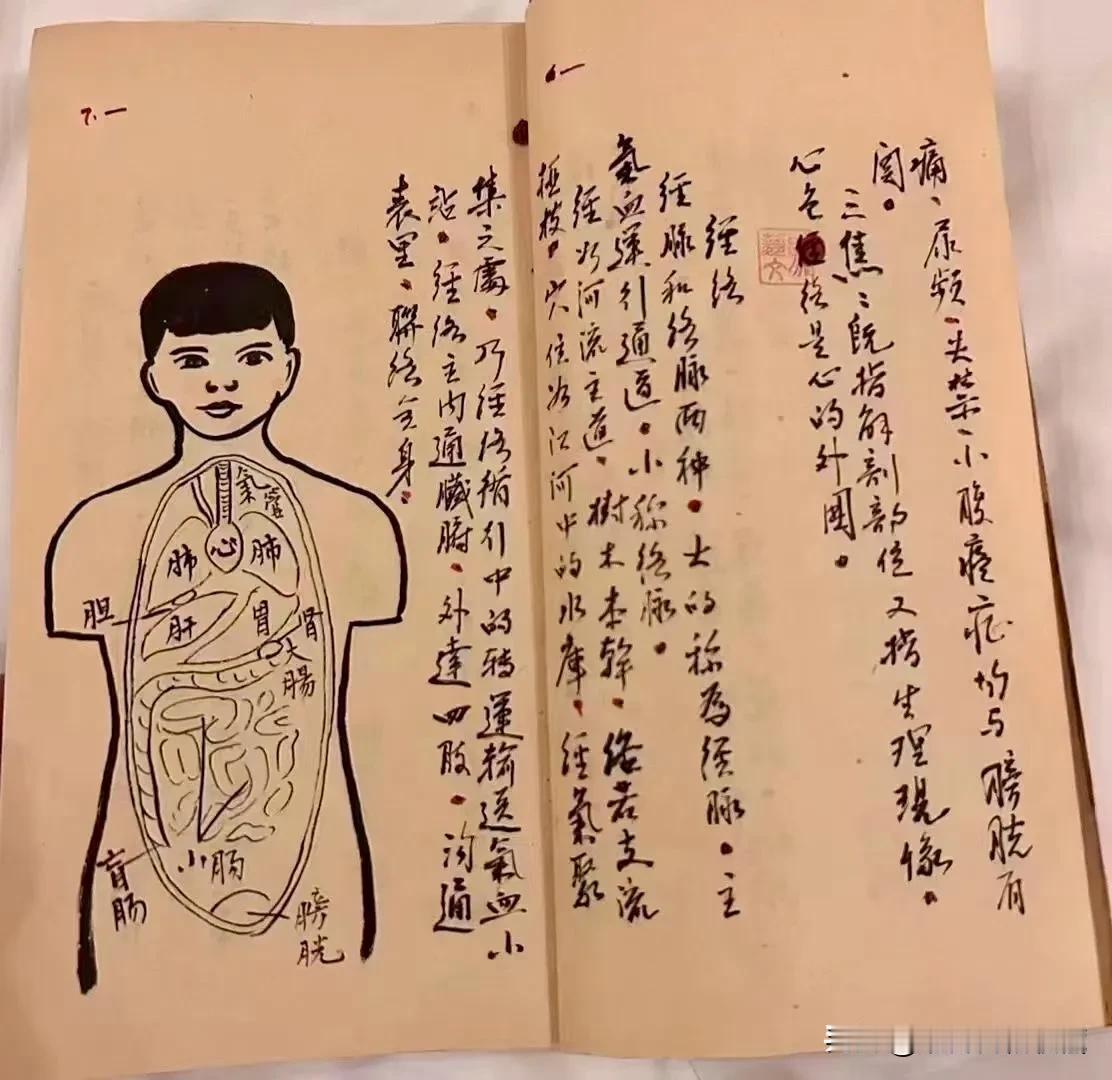 六一
痛、尿频、失禁、小腹痠症均与膀胱有
関。
三焦:既指解剖部位又指生理現像。
心包经络是心的外围。
经络
经脉和络脉两种。大的称為经脉。主
氣血運行通道。小称络脉。
经如河流主道。樹木本幹。络若支流
极枝。穴位如江河中的水庫。经氣聚
七一
集之處。乃经络循行中的转運输送氣血小
站。经络主内通臓腑。外達四肢。沟通
表里。聯络全身。
氣管
肺
心
肺
胆
肝
胃
肾
大腸
盲肠
小肠
膀胱